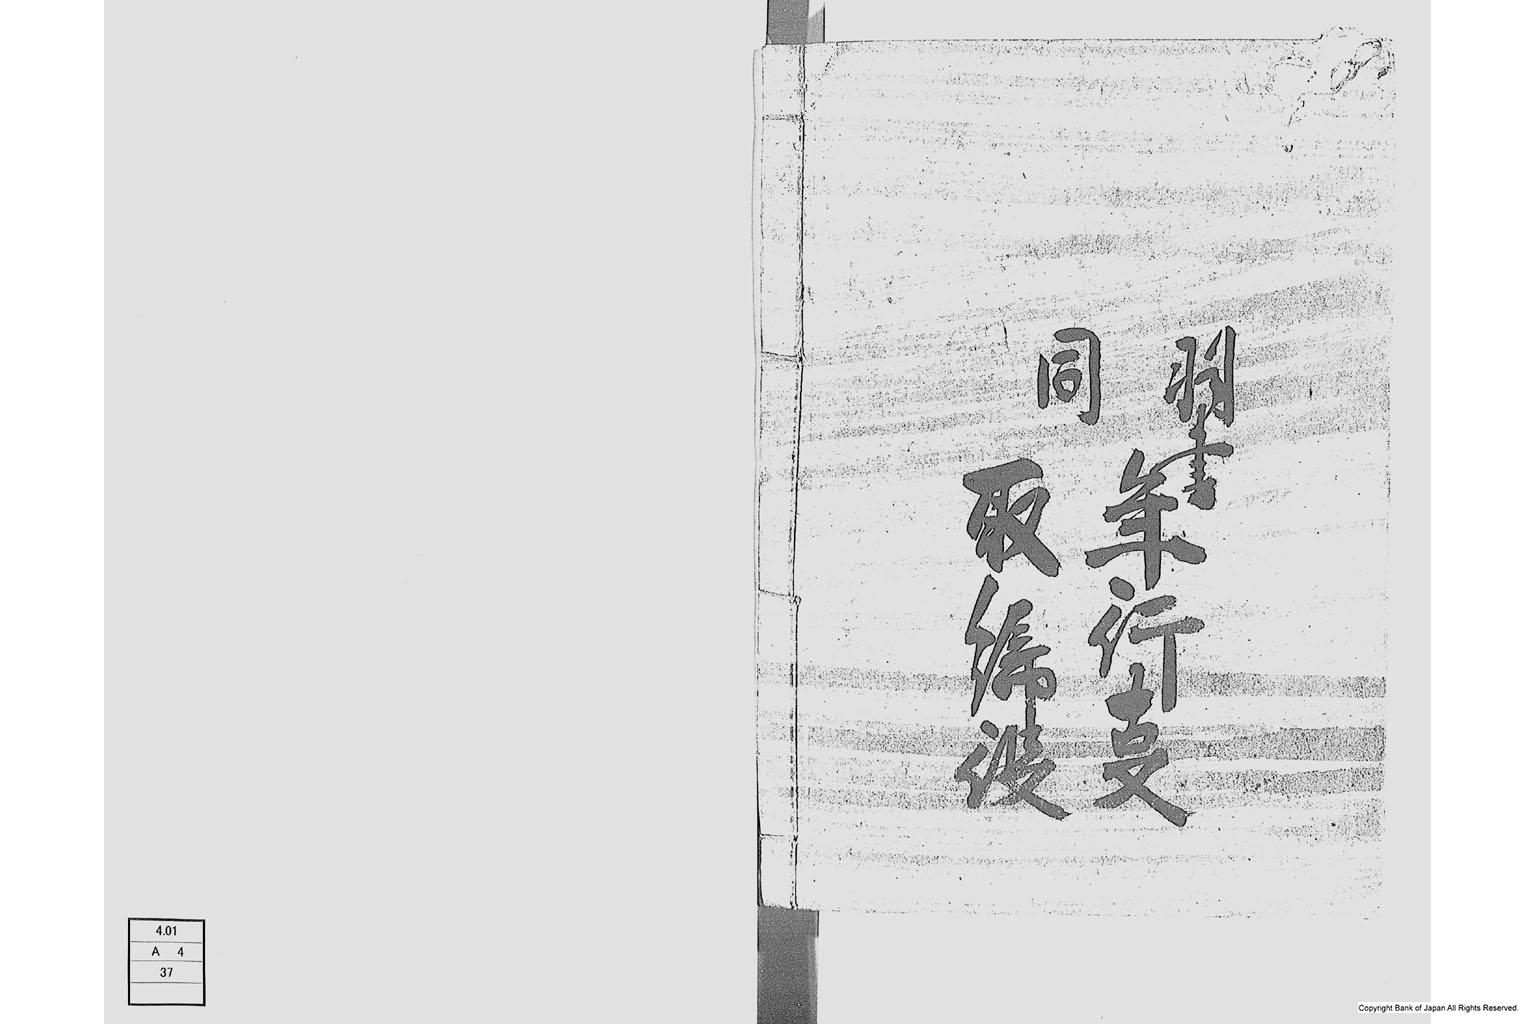 羽書年行叓
同取締役
4.01
A 4
37
Copyright Bank of Japan All Rights Reserved.